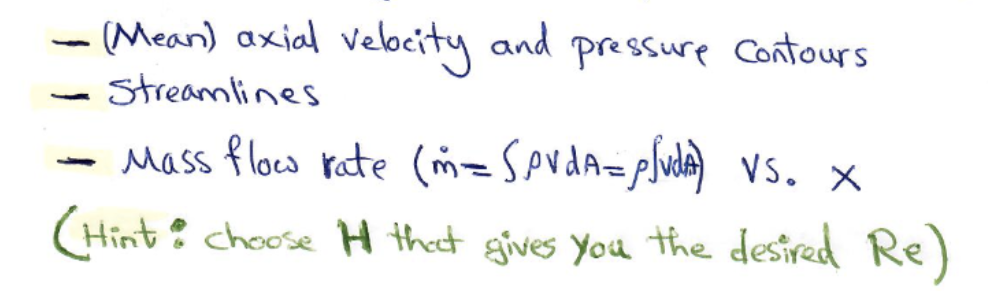 — (Mean) axial velocity and pressure contours
— Streamlines
— Mass flow rate (ṁ = ∫ρvdA = ρ∫vdA) vs. x
(Hint: choose H that gives you the desired Re)